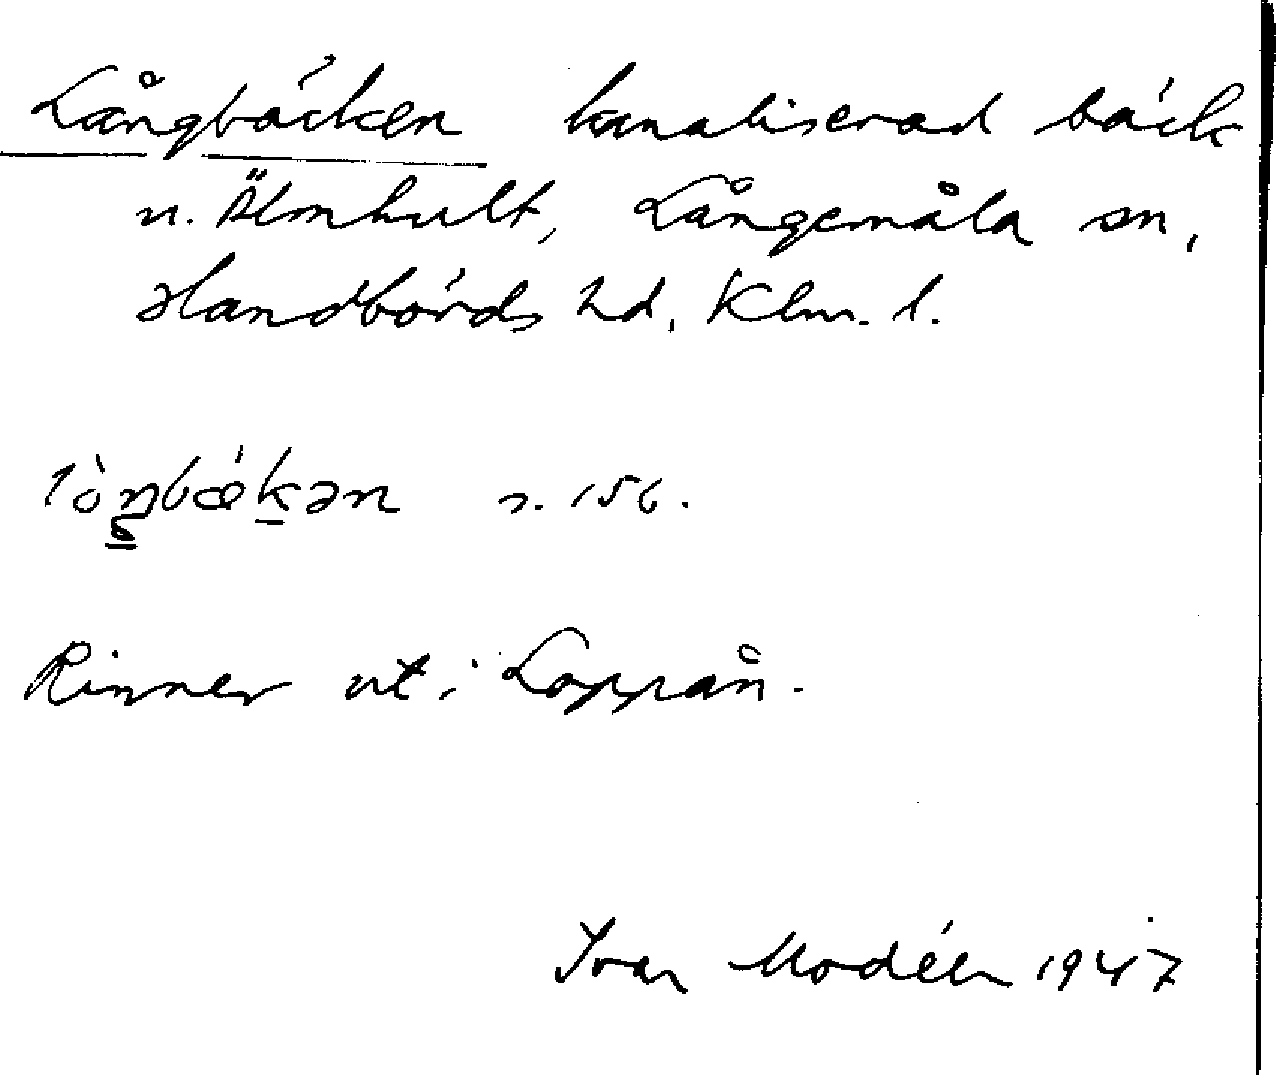 Långbäcken kanaliserad bäck
u. Älmhult, Långemåla sn,
Handbörds hd, Klm. l.
lò̀ŋbǽkən s. 156.
Rinner ut i Loppån.
Ivar Modéer 1947